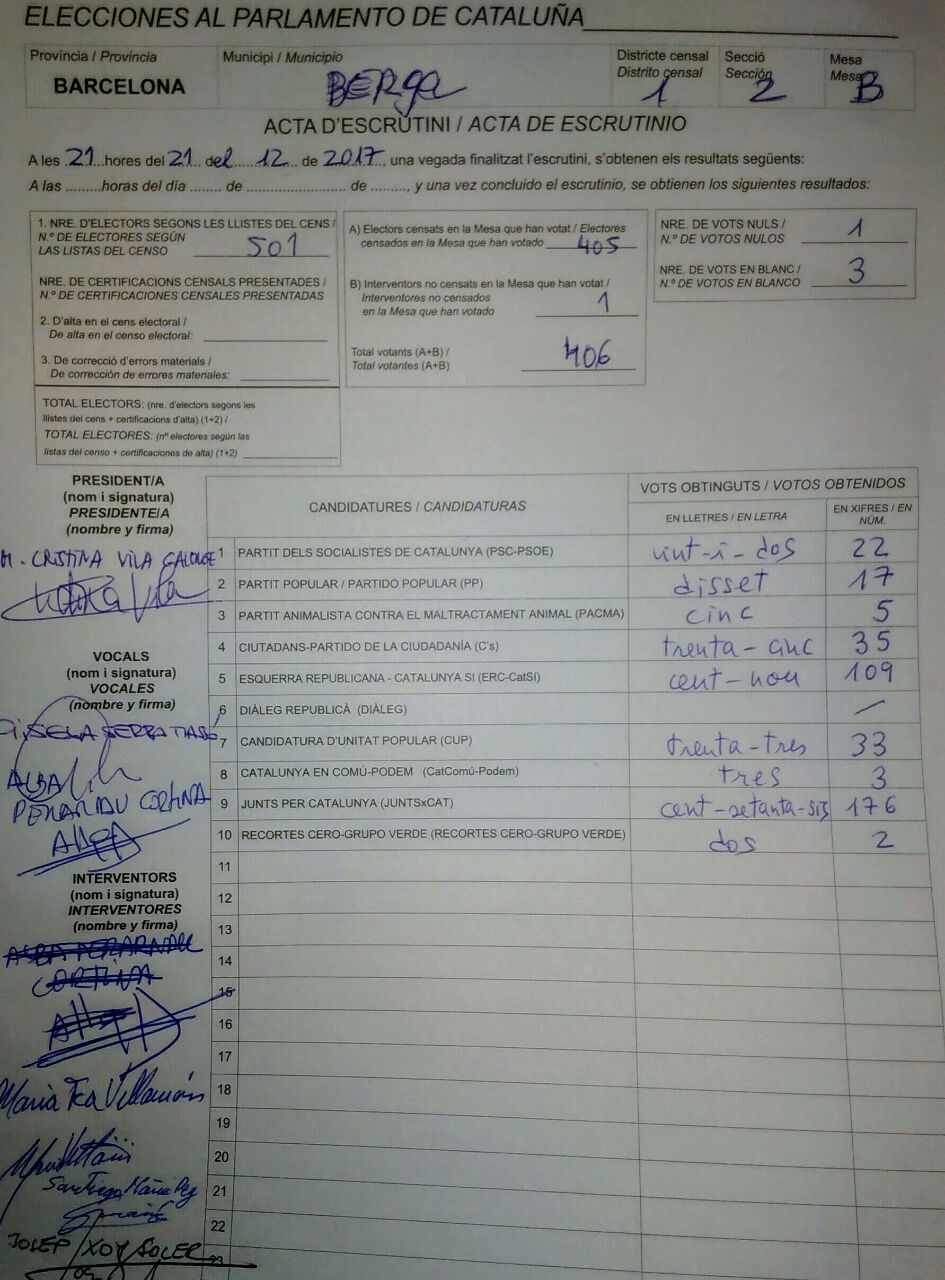 ELECCIONES AL PARLAMENTO DE CATALUÑA
Província / Provincia
BARCELONA
Municipi / Municipio
BERga
Districte censal
Distrito censal
1
Secció
Sección
2
Mesa
Mesa
B
ACTA D'ESCRUTINI / ACTA DE ESCRUTINIO
A les 21 hores del 21 del 12 de 2017, una vegada finalitzat l'escrutini, s'obtenen els resultats següents:
A las .........horas del día ........ de ........................ de ........., y una vez concluido el escrutinio, se obtienen los siguientes resultados:
1. NRE. D'ELECTORS SEGONS LES LLISTES DEL CENS /
N.º DE ELECTORES SEGÚN
LAS LISTAS DEL CENSO 501
NRE. DE CERTIFICACIONS CENSALS PRESENTADES /
N.º DE CERTIFICACIONES CENSALES PRESENTADAS
2. D'alta en el cens electoral /
De alta en el censo electoral:
3. De correcció d'errors materials /
De corrección de errores materiales:
TOTAL ELECTORS: (nre. d'electors segons les
llistes del cens + certificacions d'alta) (1+2) /
TOTAL ELECTORES: (nº electores según las
listas del censo + certificaciones de alta) (1+2)
A) Electors censats en la Mesa que han votat / Electores
censados en la Mesa que han votado 405
B) Interventors no censats en la Mesa que han votat /
Interventores no censados
en la Mesa que han votado 1
Total votants (A+B) /
Total votantes (A+B) 406
NRE. DE VOTS NULS /
N.º DE VOTOS NULOS 1
NRE. DE VOTS EN BLANC /
N.º DE VOTOS EN BLANCO 3
PRESIDENT/A
(nom i signatura)
PRESIDENTE/A
(nombre y firma)
M. CRISTINA VILA
VOCALS
(nom i signatura)
VOCALES
(nombre y firma)
GISELA SERRA
ALBA
PERARNAU CORTINA
ALBA
INTERVENTORS
(nom i signatura)
INTERVENTORES
(nombre y firma)
ALBA PERARNAU
CORTINA
Maria
Santiago
JOSEP XOY SOLER
CANDIDATURES / CANDIDATURAS
VOTS OBTINGUTS / VOTOS OBTENIDOS
EN LLETRES / EN LETRA
EN XIFRES / EN NÚM.
1 PARTIT DELS SOCIALISTES DE CATALUNYA (PSC-PSOE) vint-i-dos 22
2 PARTIT POPULAR / PARTIDO POPULAR (PP) disset 17
3 PARTIT ANIMALISTA CONTRA EL MALTRACTAMENT ANIMAL (PACMA) cinc 5
4 CIUTADANS-PARTIDO DE LA CIUDADANÍA (C's) trenta-cinc 35
5 ESQUERRA REPUBLICANA - CATALUNYA SI (ERC-CatSí) cent-nou 109
6 DIÀLEG REPUBLICÀ (DIÀLEG) —
7 CANDIDATURA D'UNITAT POPULAR (CUP) trenta-tres 33
8 CATALUNYA EN COMÚ-PODEM (CatComú-Podem) tres 3
9 JUNTS PER CATALUNYA (JUNTSxCAT) cent-setanta-sis 176
10 RECORTES CERO-GRUPO VERDE (RECORTES CERO-GRUPO VERDE) dos 2
11
12
13
14
15
16
17
18
19
20
21
22
23